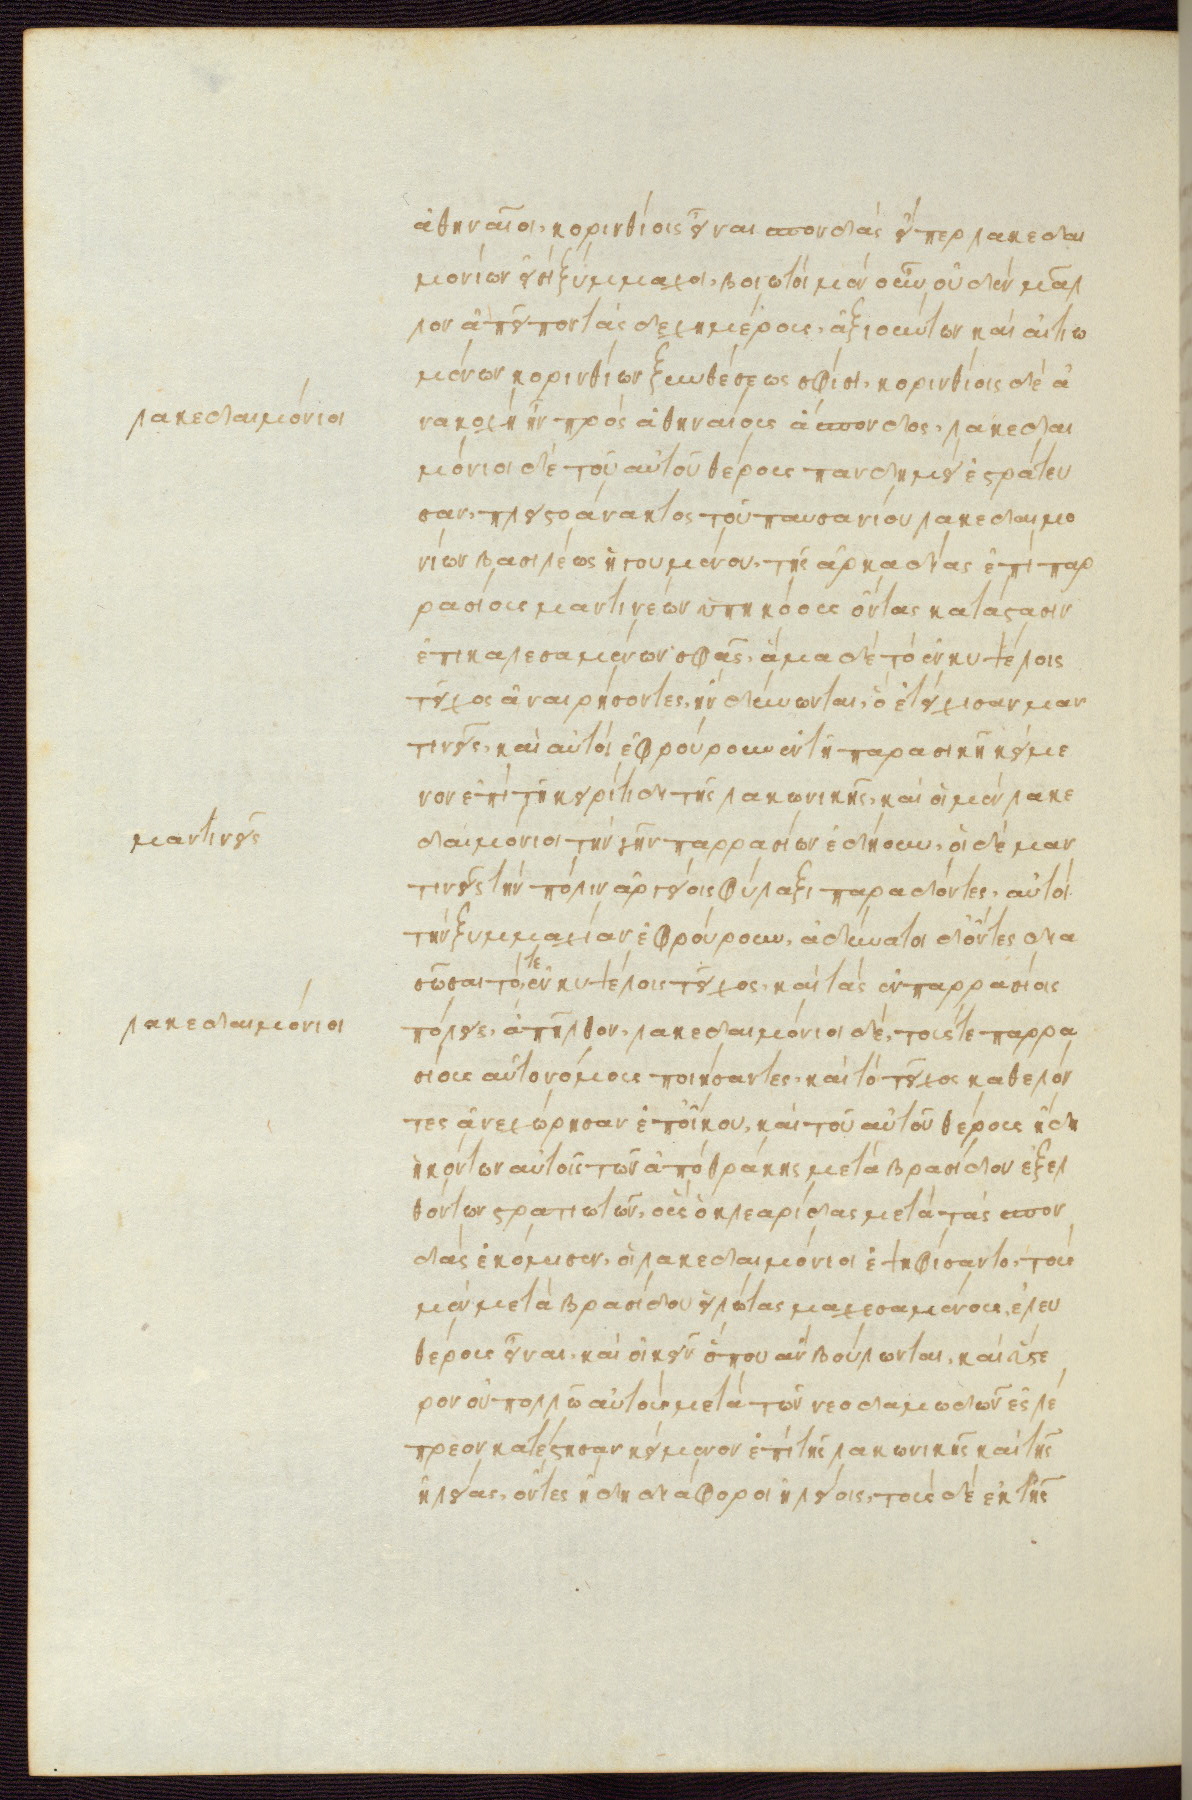 ἀθηναῖοι, κορινθίοις εἶναι σπονδάς εἴπερ λακεδαι
μονίων εἰσὶ ξύμμαχοι, βοιωτοὶ μὲν οὖν οὐδὲν μᾶλ
λον ἀπεῖπον τὰς δεχημέρους, ἀξιούντων καὶ αἰτιω
μένων κορινθίων ξυνθέσεως σφίσι, κορινθίοις δὲ ἀ
νακοχὴ ἦν πρὸς ἀθηναίους ἄσπονδος, λακεδαι
λακεδαιμόνιοι
μόνιοι δὲ τοῦ αὐτοῦ θέρους πανδημεὶ ἐστράτευ
σαν, πλειστοάνακτος τοῦ παυσανίου λακεδαιμο
νίων βασιλέως ἡγουμένου, τῆς ἀρκαδίας ἐπὶ παρ
ρασίους μαντινέων ὑπηκόους ὄντας κατὰ στάσιν
ἐπικαλεσαμένων σφᾶς, ἅμα δὲ τὸ ἐν κυψέλοις
τεῖχος ἀναιρήσοντες, ἢν δύνωνται, ὃ ἐτείχισαν μαν
τινεῖς, καὶ αὐτοὶ ἐφρούρουν ἐν τῇ παρασικῇ κείμε
νον ἐπὶ τῇ σκιρίτιδι τῆς λακωνικῆς, καὶ οἱ μὲν λακε
δαιμόνιοι τὴν γῆν παρρασίων ἐδῄουν, οἱ δὲ μαν
μαντινεῖς
τινεῖς τὴν πόλιν ἀργείοις φύλαξι παραδόντες, αὐτοὶ
τὴν ξυμμαχίαν ἐφρούρουν, ἀδύνατοι δ' ὄντες δια
σῶσαι τό τε ἐν κυψέλοις τεῖχος, καὶ τὰς ἐν παρρασίοις
πόλεις, ἀπῆλθον, λακεδαιμόνιοι δὲ, τούς τε παρρα
λακεδαιμόνιοι
σίους αὐτονόμους ποιήσαντες, καὶ τὸ τεῖχος καθελόν
τες ἀνεχώρησαν ἐπ' οἴκου, καὶ τοῦ αὐτοῦ θέρους ἤδη
ἡκόντων αὐτοῖς τῶν ἀπὸ θράκης μετὰ βρασίδου ἐξελ
θόντων στρατιωτῶν, οὓς ὁ κλεαρίδας μετὰ τὰς σπον
δὰς ἐκόμισεν, οἱ λακεδαιμόνιοι ἐψηφίσαντο, τοὺς
μὲν μετὰ βρασίδου εἵλωτας μαχεσαμένους, ἐλευ
θέρους εἶναι, καὶ οἰκεῖν ὅπου ἂν βούλωνται, καὶ ὕστε
ρον οὐ πολλῷ αὐτοὺς μετὰ τῶν νεοδαμωδῶν ἐς λέ
πρεον κατέστησαν κείμενον ἐπὶ τῆς λακωνικῆς καὶ τῆς
ἠλείας, ὄντες ἤδη διάφοροι ἠλείοις, τοὺς δὲ ἐκ τῆς